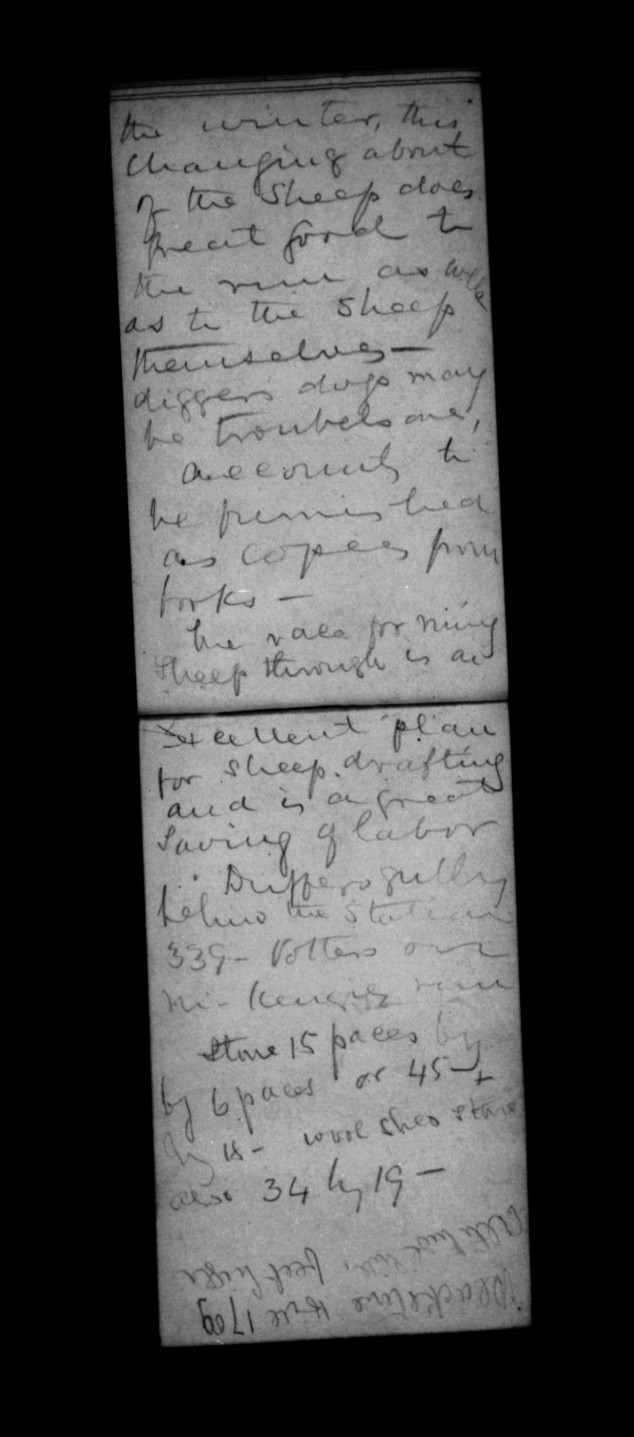 the winter, this
changing about
of the Sheep does
great good to
the run as well
as to the Sheep
themselves—
diggers dogs may
be troublesome,
accounts to
be furnished
as copies from
books —
The race for runing
Sheep through is an
Excellent plan
for sheep drafting
and is a great
Saving of labor
Duffers gully
behind the Station
339- Votters on
run
Stone 15 paces by
by 6 paces or 45-
by 18- wool shed stone
also 34 by 19 —
feet high
Blackstone Hill 1709